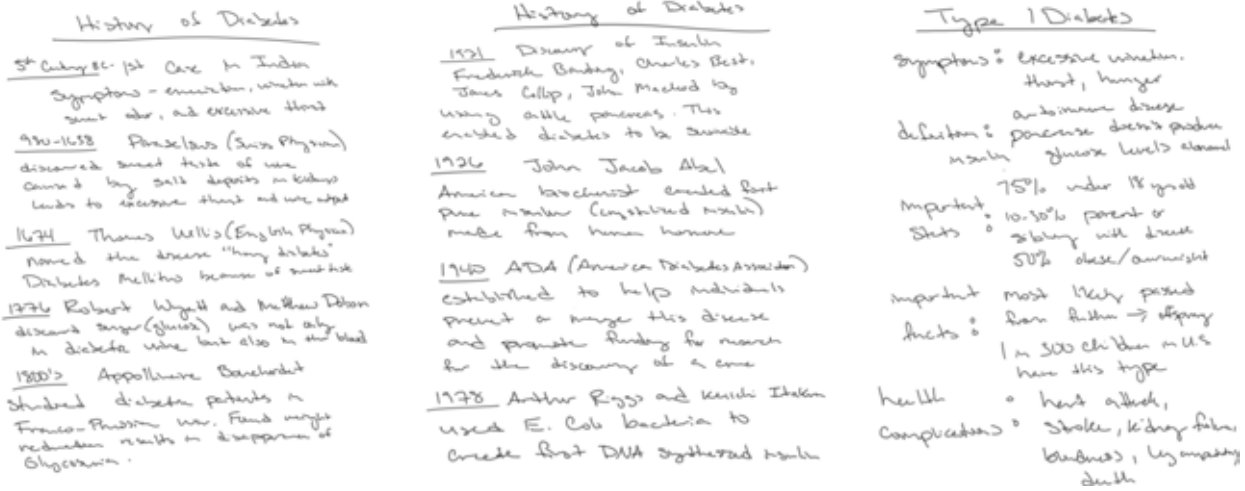 History of Diabetes
5th Century BC. 1st Case in Indian
Symptoms - emaciation, urination with
sweet odor, and excessive thirst
Paracelsus (Swiss Physician)
discovered sweet taste of urine
caused by salt deposits in kidneys
leads to excessive thirst and urine output
1674 Thomas Willis (English Physician)
named the disease "honey diabetes"
Diabetes Mellitus because of sweet taste
1776 Robert Wyatt and Matthew Dobson
discovered sugar (glucose) was not only
in diabetic urine but also in the blood
1800's Appollinaire Bouchardat
studied diabetes patients in
Franco-Prussian war. Found weight
reduction results in disappearance of
Glycosuria.
History of Diabetes
1921 Discovery of Insulin
Frederick Banting, Charles Best,
James Collip, John Macleod by
using cattle pancreas. This
enabled diabetes to be
1926 John Jacob Abel
American biochemist created first
pure insulin (crystalized insulin)
made from human hormone
1940 ADA (America Diabetes Association)
established to help individuals
prevent or manage this disease
and promote funding for research
for the discovery of a cure
1978 Arthur Riggs and Keiichi Itakura
used E. Coli bacteria to
create first DNA synthesized insulin
Type 1 Diabetes
Symptoms: excessive urination,
thirst, hunger
autoimmune disease
definition: pancreas doesn't produce
insulin glucose levels abnormal
75% under 18 yrs old
important stats: 10-50% parent or
sibling with disease
50% obese/overweight
important most likely passed
facts: from father → offspring
1 in 300 children in US
have this type
health : heart attack,
complications: stroke, kidney failure,
blindness, leg amputation,
death